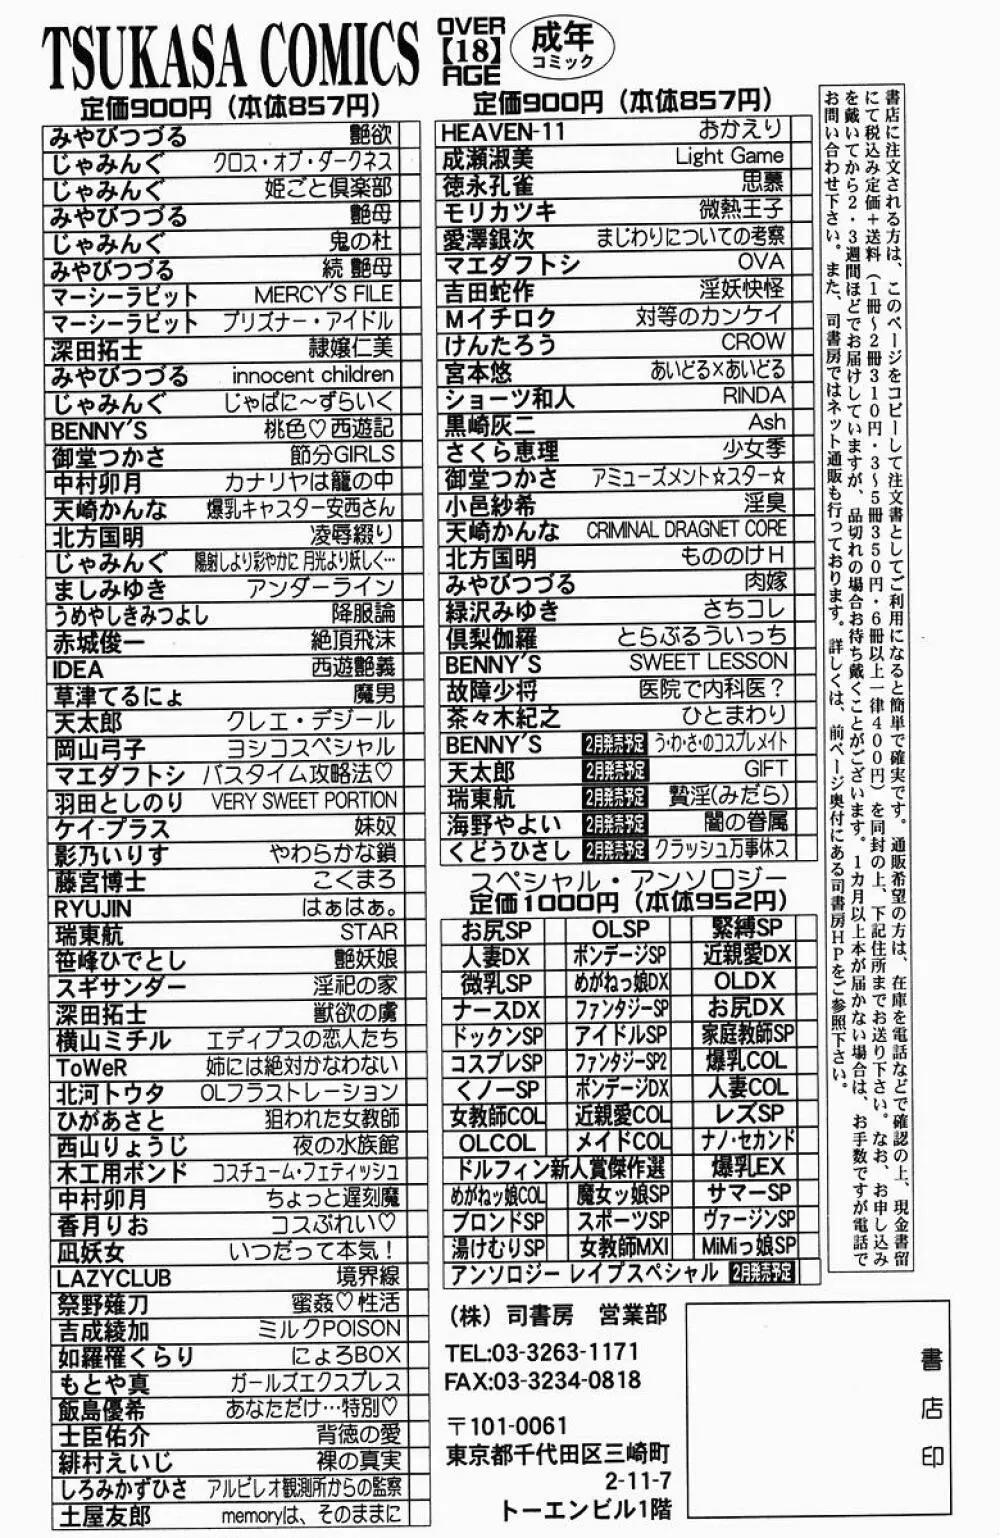 TSUKASA COMICS
OVER
【18】
AGE
成年
コミック
定価900円（本体857円）
みやびつづる 艶欲
じゃみんぐ クロス・オブ・ダークネス
じゃみんぐ 姫ごと倶楽部
みやびつづる 艶母
じゃみんぐ 鬼の杜
みやびつづる 続 艶母
マーシーラビット MERCY'S FILE
マーシーラビット プリズナー・アイドル
深田拓士 隷嬢仁美
みやびつづる innocent children
じゃみんぐ じゃぱに～ずらいく
BENNY'S 桃色♡西遊記
御堂つかさ 節分GIRLS
中村卯月 カナリヤは籠の中
天崎かんな 爆乳キャスター安西さん
北方国明 凌辱綴り
じゃみんぐ 陽射しより彩やかに 月光より妖しく…
ましみゆき アンダーライン
うめやしきみつよし 降服論
赤城俊一 絶頂飛沫
IDEA 西遊艶義
草津てるにょ 魔男
天太郎 クレエ・デジール
岡山弓子 ヨシコスペシャル
マエダフトシ バスタイム攻略法♡
羽田としのり VERY SWEET PORTION
ケイ-プラス 妹奴
影乃いりす やわらかな鎖
藤宮博士 こくまろ
RYUJIN はぁはぁ。
瑞東航 STAR
笹峰ひでとし 艶妖娘
スギサンダー 淫祀の家
深田拓士 獣欲の虜
横山ミチル エディプスの恋人たち
ToWeR 姉には絶対かなわない
北河トウタ OLフラストレーション
ひがあさと 狙われた女教師
西山りょうじ 夜の水族館
木工用ボンド コスチューム・フェティッシュ
中村卯月 ちょっと遅刻魔
香月りお コスぷれい♡
凪妖女 いつだって本気！
LAZYCLUB 境界線
祭野薙刀 蜜姦♡性活
吉成綾加 ミルクPOISON
如羅罹くらり にょろBOX
もとや真 ガールズエクスプレス
飯島優希 あなただけ…特別♡
士臣佑介 背徳の愛
緋村えいじ 裸の真実
しろみかずひさ アルビレオ観測所からの監察
土屋友郎 memoryは、そのままに
定価900円（本体857円）
HEAVEN-11 おかえり
成瀬淑美 Light Game
徳永孔雀 思慕
モリカツキ 微熱王子
愛澤銀次 まじわりについての考察
マエダフトシ OVA
吉田蛇作 淫妖快怪
Mイチロク 対等のカンケイ
けんたろう CROW
宮本悠 あいどる×あいどる
ショーツ和人 RINDA
黒崎灰二 Ash
さくら恵理 少女季
御堂つかさ アミューズメント☆スター☆
小邑紗希 淫臭
天崎かんな CRIMINAL DRAGNET CORE
北方国明 もののけH
みやびつづる 肉嫁
緑沢みゆき さちコレ
倶梨伽羅 とらぶるういっち
BENNY'S SWEET LESSON
故障少将 医院で内科医？
茶々木紀之 ひとまわり
BENNY'S 2月発売予定 う・わ・さ・のコスプレメイト
天太郎 2月発売予定 GIFT
瑞東航 2月発売予定 贄淫(みだら)
海野やよい 2月発売予定 闇の眷属
くどうひさし 2月発売予定 クラッシュ万事休ス
スペシャル・アンソロジー
定価1000円（本体952円）
お尻SP OLSP 緊縛SP
人妻DX ボンデージSP 近親愛DX
微乳SP めがねっ娘DX OLDX
ナースDX ファンタジーSP お尻DX
ドックンSP アイドルSP 家庭教師SP
コスプレSP ファンタジーSP2 爆乳COL
くノーSP ボンデージDX 人妻COL
女教師COL 近親愛COL レズSP
OLCOL メイドCOL ナノ・セカンド
ドルフィン新人賞傑作選 爆乳EX
めがねッ娘COL 魔女ッ娘SP サマーSP
ブロンドSP スポーツSP ヴァージンSP
湯けむりSP 女教師MXI MiMiっ娘SP
アンソロジー レイプスペシャル 2月発売予定
書店に注文される方は、このページをコピーして注文書としてご利用になると簡単で確実です。通販希望の方は、在庫を電話などで確認の上、現金書留
にて税込み定価＋送料（1冊～2冊310円・3～5冊350円・6冊以上一律400円）を同封の上、下記住所までお送り下さい。なお、お申し込み
を戴いてから2・3週間ほどでお届けしていますが、品切れの場合お待ち戴くことがございます。1カ月以上本が届かない場合は、お手数ですが電話で
お問い合わせ下さい。また、司書房ではネット通販も行っております。詳しくは、前ページ奥付にある司書房HPをご参照下さい。
（株）司書房 営業部
TEL:03-3263-1171
FAX:03-3234-0818
〒101-0061
東京都千代田区三崎町
2-11-7
トーエンビル1階
書店印